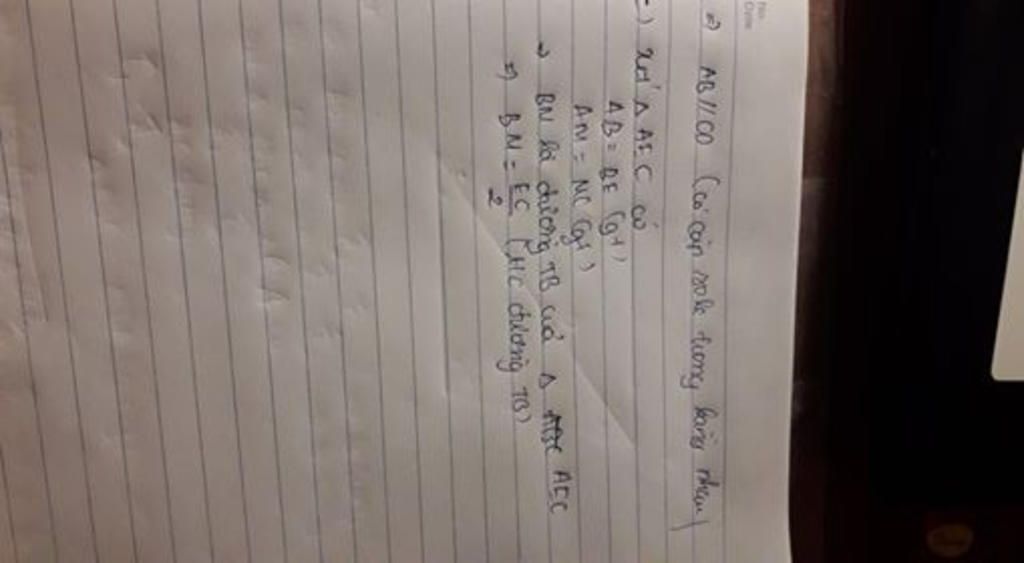 No.
Date
=> AB//CD (có cặp sole trong bằng nhau)
c) xét Δ AEC có
AB = BE (gt)
AN = NC (gt)
=> BN là đường TB của Δ AEC
=> BN = EC/2 (T/C đường TB)